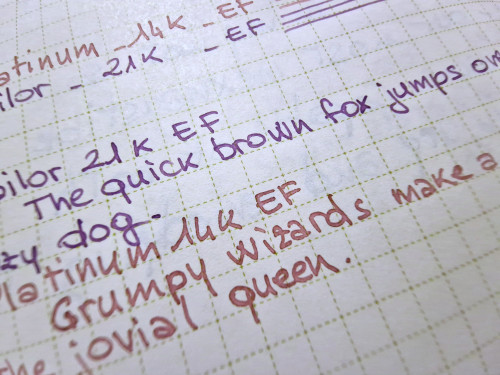 latinum - 14K - EF
ilor - 21K - EF
ilor 21K EF
The quick brown fox jumps
zy dog.
Platinum 14K EF
Grumpy wizards make a
the jovial queen.